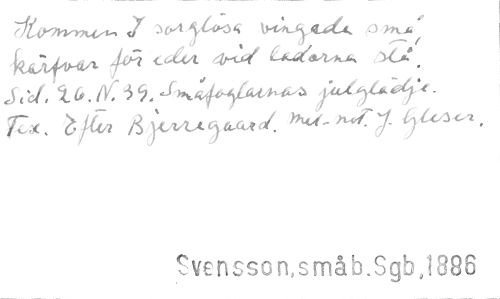 Kommen I sorglösa vingade små,
kärfvar för eder vid ladorna stå.
Sid. 26. N. 39. Småfoglarnas julglädje.
Tex. Efter Bjerregaard. Mel.-not. J. Gleser.
Svensson, småb. Sgb, 1886